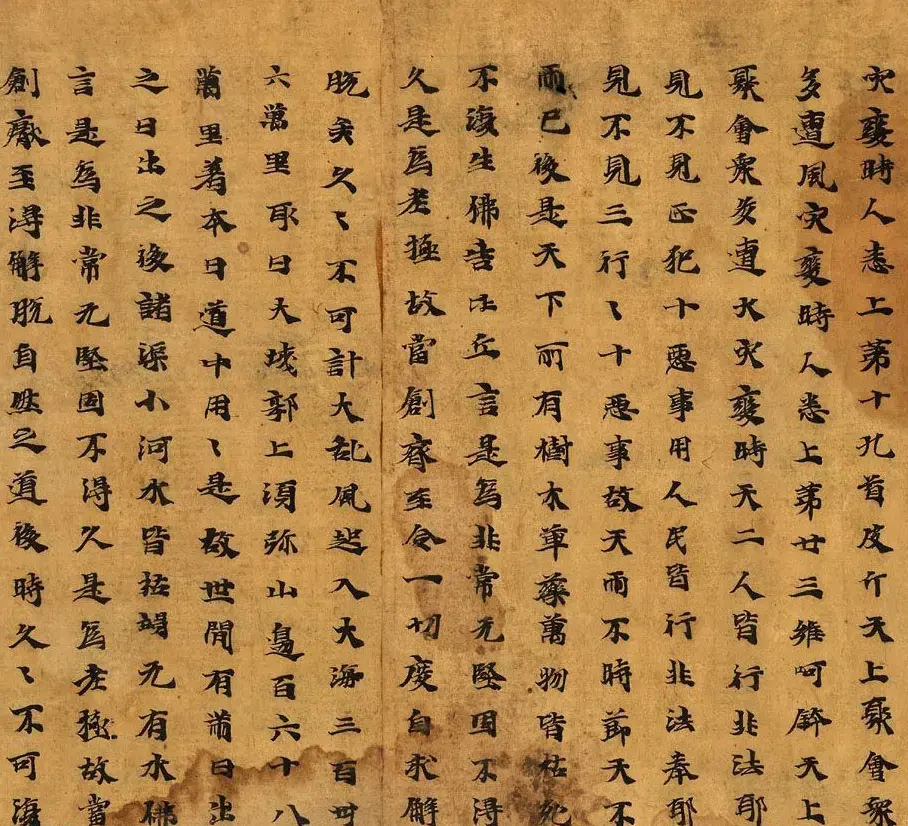 灾變時人悉上第十九首皮斤天上聚會衆
多遭風灾變時人悉上第廿三維呵鉢天上
聚會衆多遭火灾變時天二人皆行非法耶
見不見正犯十惡事用人民皆行非法奉耶
見不見三行〻十惡事故天雨不時節天不
雨已後是天下所有樹木草藥萬物皆枯死
不復生佛告比丘言是為非常无堅固不得
久是為老極故當創療至令一切度自求解
脫矣久〻不可計大乱風起入大海三百卅
六萬里取日大城郭上須弥山邊百六十八
萬里著本日道中用〻是故世間有兩日出
之日出之後諸渠小河水皆枯竭无有水佛
言是為非常无堅固不得久是為老極故當
創療至得解脫自然之道後時久〻不可復